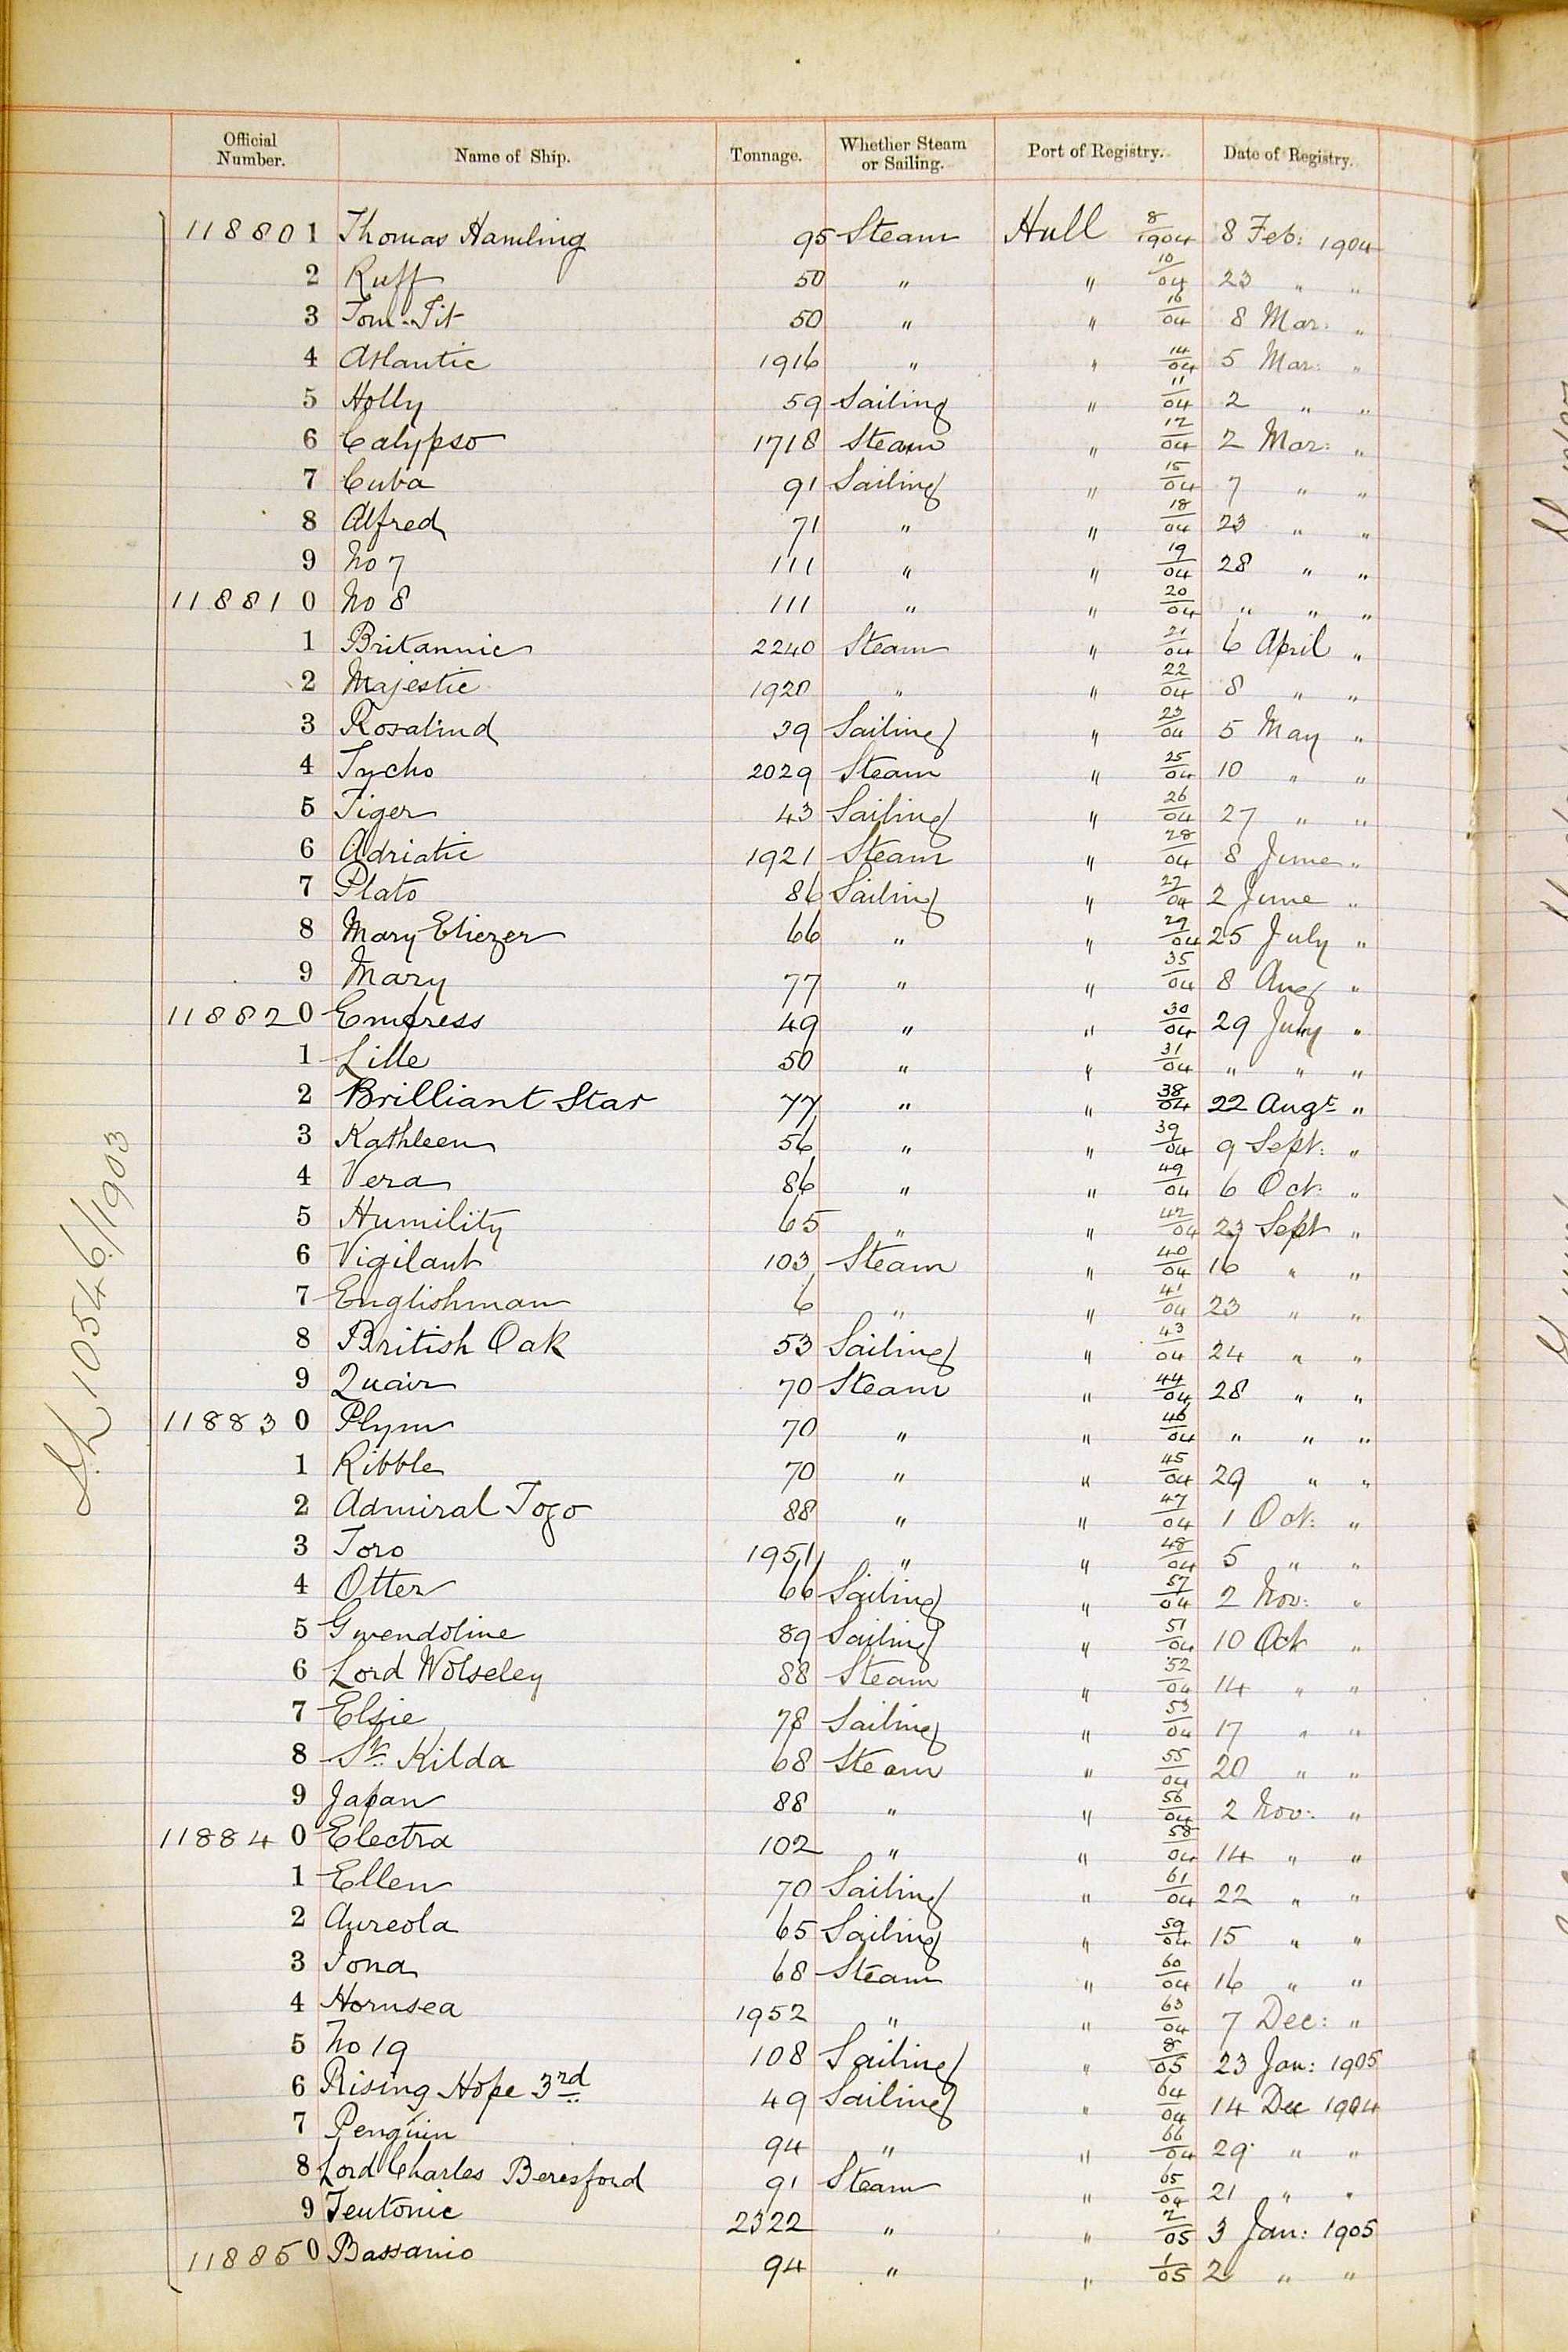 Official Number. Name of Ship. Tonnage. Whether Steam or Sailing. Port of Registry. Date of Registry.
118801 Thomas Hamling 95 Steam Hull 8/1904 8 Feb: 1904
2 Ruff 50 " " 10/04 23 " "
3 Tom-Tit 50 " " 16/04 8 Mar: "
4 Atlantic 1916 " " 14/04 5 Mar: "
5 Holly 59 Sailing " 11/04 2 " "
6 Calypso 1718 Steam " 12/04 2 Mar: "
7 Cuba 91 Sailing " 15/04 7 " "
8 Alfred 71 " " 18/04 23 " "
9 No 7 111 " " 19/04 28 " "
118810 No 8 111 " " 20/04 " " "
1 Britannic 2240 Steam " 21/04 6 April "
2 Majestic 1920 " " 22/04 8 " "
3 Rosalind 39 Sailing " 23/04 5 May "
4 Tycho 2029 Steam " 25/04 10 " "
5 Tiger 43 Sailing " 26/04 27 " "
6 Adriatic 1921 Steam " 28/04 8 June "
7 Plato 86 Sailing " 27/04 2 June "
8 Mary Eliezer 66 " " 29/04 25 July "
9 Mary 77 " " 35/04 8 Aug "
118820 Empress 49 " " 30/04 29 July "
1 Lille 50 " " 31/04 " " "
2 Brilliant Star 77 " " 38/04 22 Augt "
3 Kathleen 56 " " 39/04 9 Sept: "
4 Vera 86 " " 49/04 6 Oct: "
5 Humility 65 " " 42/04 23 Sept "
6 Vigilant 103 Steam " 40/04 16 " "
7 Englishman 6 " " 41/04 23 " "
8 British Oak 53 Sailing " 43/04 24 " "
9 Quair 70 Steam " 44/04 28 " "
118830 Plym 70 " " 46/04 " " "
1 Ribble 70 " " 45/04 29 " "
2 Admiral Togo 88 " " 47/04 1 Oct: "
3 Toro 1951 " " 48/04 5 " "
4 Otter 66 Sailing " 57/04 2 Nov: "
5 Gwendoline 89 Sailing " 51/04 10 Oct "
6 Lord Wolseley 88 Steam " 52/04 14 " "
7 Elsie 78 Sailing " 53/04 17 " "
8 St. Kilda 68 Steam " 55/04 20 " "
9 Japan 88 " " 56/04 2 Nov: "
118840 Electra 102 " " 58/04 14 " "
1 Ellen 70 Sailing " 61/04 22 " "
2 Aureola 65 Sailing " 59/04 15 " "
3 Iona 68 Steam " 60/04 16 " "
4 Hornsea 1952 " " 63/04 7 Dec: "
5 No 19 108 Sailing " 8/05 23 Jan: 1905
6 Rising Hope 3rd 49 Sailing " 64/04 14 Dec 1904
7 Penguin 94 " " 66/04 29 " "
8 Lord Charles Beresford 91 Steam " 65/04 21 " "
9 Teutonic 2322 " " 2/05 3 Jan: 1905
118850 Bassanio 94 " " 1/05 2 " "
10546/1903